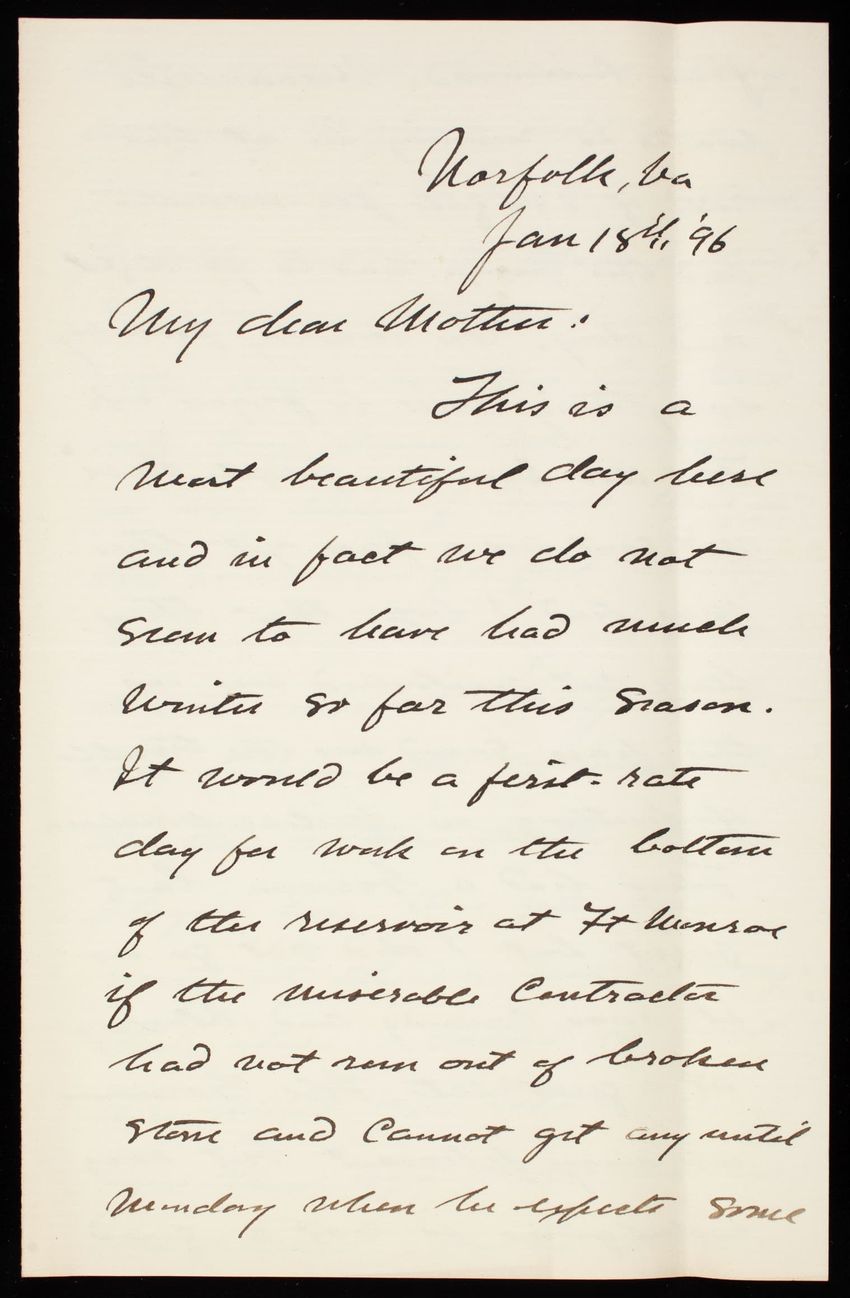 Norfolk, Va
Jan 18th, '96
My dear Mother:
This is a
most beautiful day here
and in fact we do not
seem to have had much
Winter so far this Season.
It would be a first-rate
day for work on the bottom
of the reservoir at Ft Monroe
if the miserable Contractor
had not run out of broken
stone and Cannot get any until
Monday when he expects some